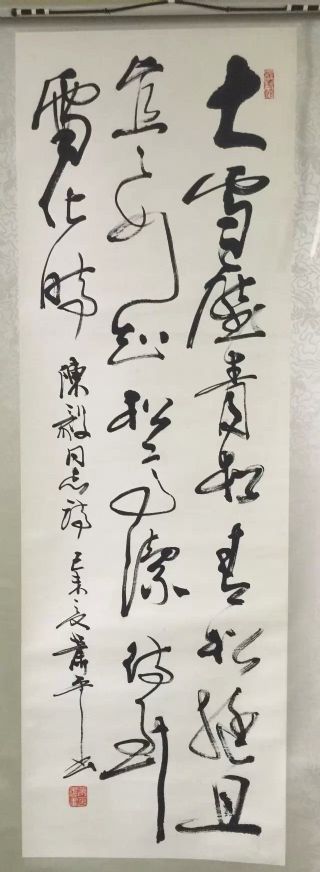 大雪壓青松青松挺且
直要知松高潔待到
雪化時
陳毅同志詩 己未夏蕭平書